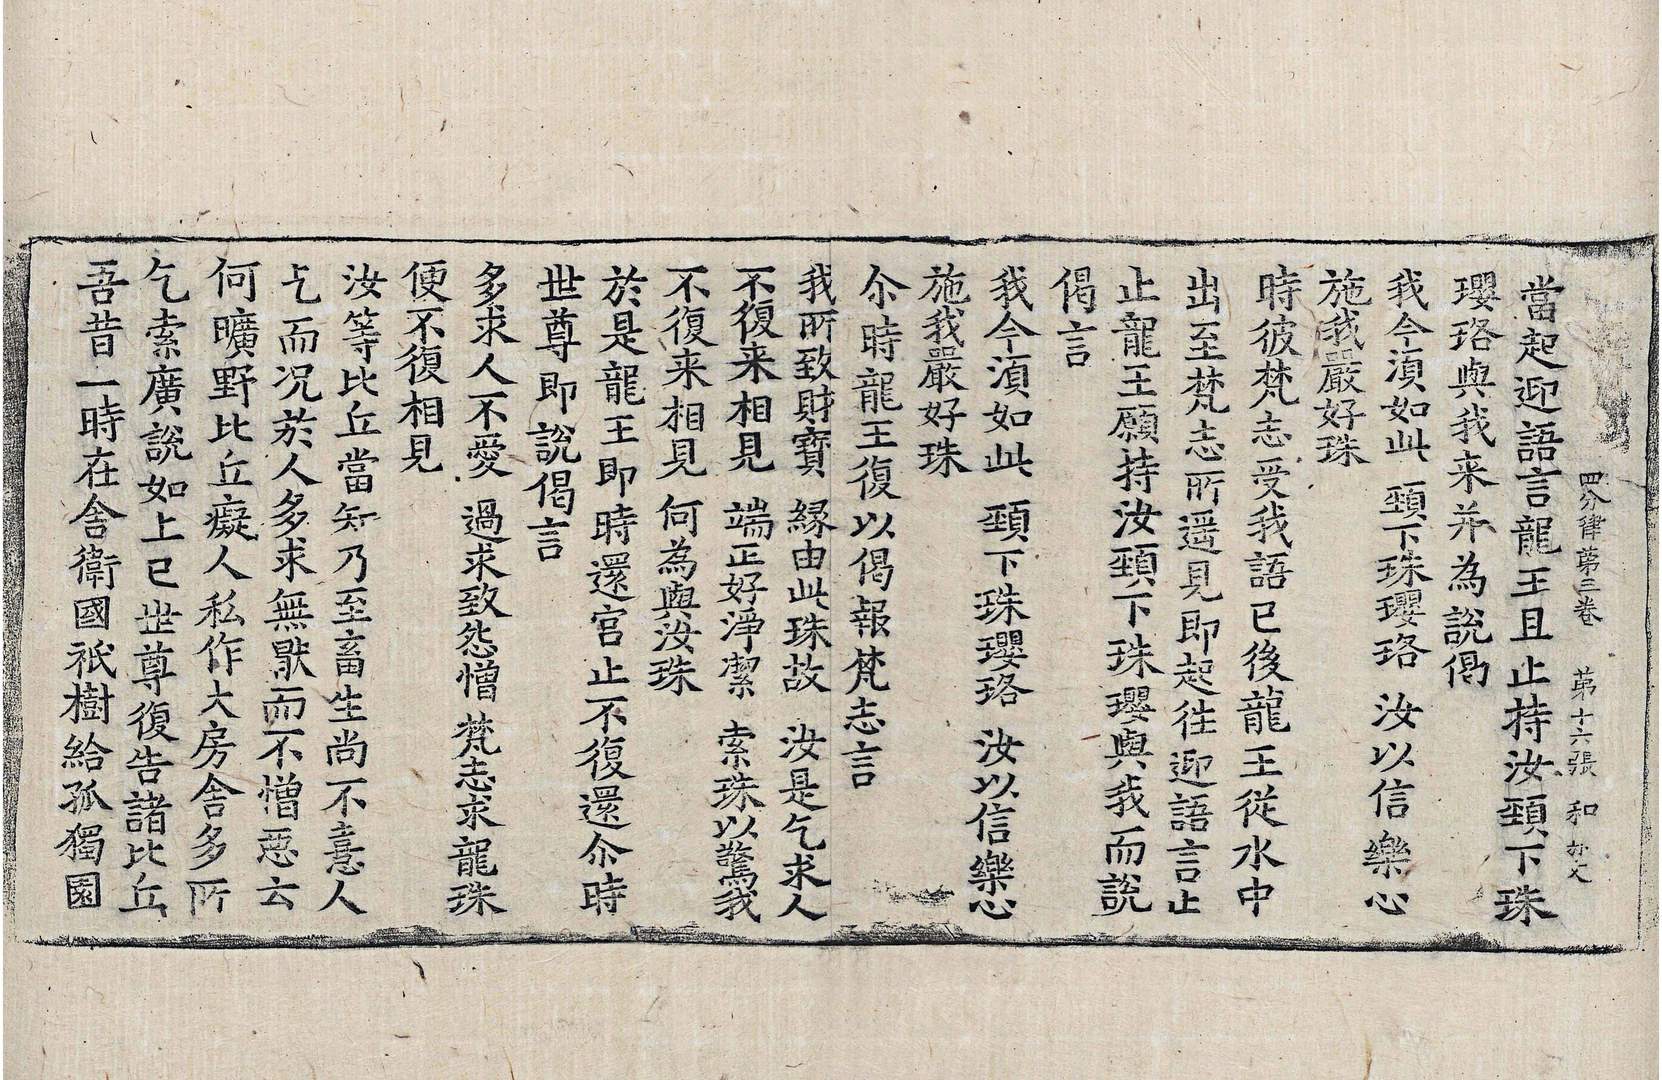 四分律苐三卷　苐十六張　和
當起迎語言龍王且止持汝頸下珠
瓔珞與我来并為說偈
我今湏如此　頸下珠瓔珞　汝以信樂心
施我嚴好珠
時彼梵志受我語已後龍王從水中
出至梵志所遥見即起往迎語言止
止龍王願持汝頸下珠瓔與我而說
偈言
我今湏如此　頸下珠瓔珞　汝以信樂心
施我嚴好珠
尒時龍王復以偈報梵志言
我所致財寶　緣由此珠故　汝是乞求人
不復来相見　端正好淨潔　索珠以驚我
不復来相見　何為與汝珠
於是龍王即時還宫止不復還尒時
世尊即說偈言
多求人不愛　過求致怨憎　梵志求龍珠
便不復相見
汝等比丘當知乃至畜生尚不憙人
乞而况於人多求無猒而不憎惡云
何曠野比丘癡人私作大房舍多所
乞索廣說如上已世尊復告諸比丘
吾昔一時在舍衛國祇樹給孤獨園